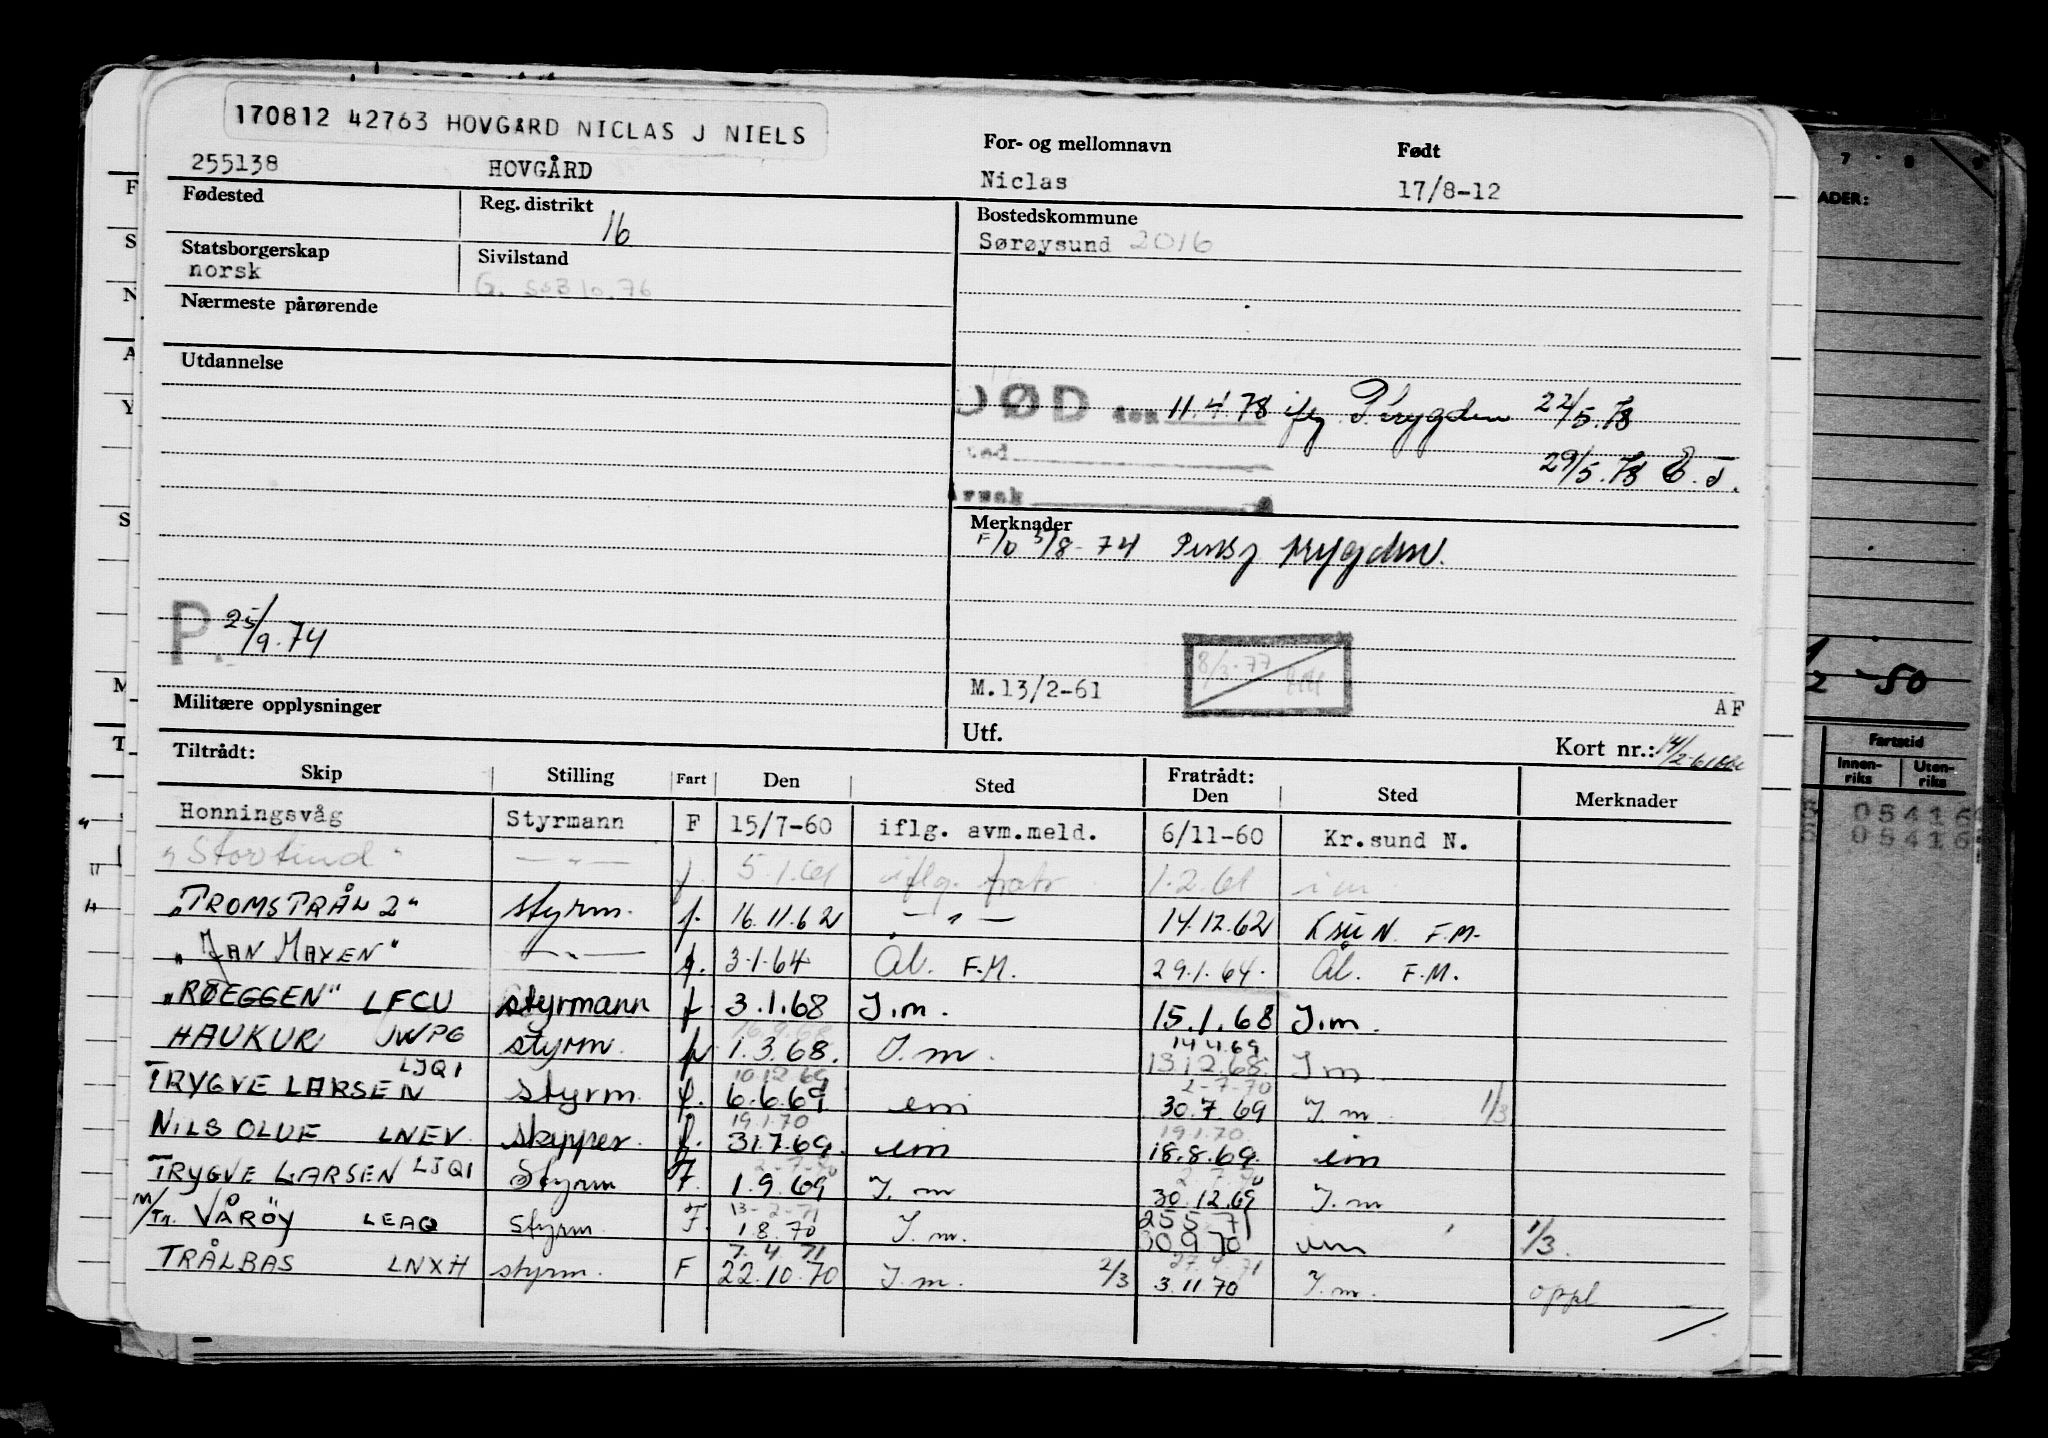 170812 42763 HOVGÅRD NICLAS J NIELS
255138 HOVGÅRD
For- og mellomnavn
Niclas
Født
17/8-12
Fødested
Reg. distrikt
16
Bostedskommune
Sørøysund 2016
Statsborgerskap
norsk
Sivilstand
G. SSB 10.76
Nærmeste pårørende
Utdannelse
DØD den 11.4.78 iflg. P.trygden 22/5.78
sted 29/5.78
årsak
Merknader
F/O 3/8-74 Pensj trygden.
P. 25/9.74
8/3-77
M.13/2-61
AF
Militære opplysninger
Utf.
Kort nr.: 14/2-61
Tiltrådt:
Skip Stilling Fart Den Sted Fratrådt: Den Sted Merknader
Honningsvåg Styrmann F 15/7-60 iflg. avm.meld. 6/11-60 Kr.sund N.
"Stortind" — " — f. 5.1.61 iflg. fratr 1.2.61 i m.
"TROMSTRÅL 2" styrm. f. 16.11.62 — " — 14.12.62 KsuN F.M.
"JAN MAYEN" — " — f. 3.1.64 Ål. F.M. 29.1.64. Ål. F.M.
"RØEGGEN" LFCU styrmann f 3.1.68 I.m. 15.1.68 I.m.
16.9.68 14.4.69
HAUKUR JWPG styrm. f 1.3.68. I.m. 13.12.68. I m.
10.12.69 2-7-70
TRYGVE LARSEN LJQI styrm. f. 6.6.69 eim 30.7.69 I.m. 1/3
19.1.70 19.1.70
NILS OLUF LNEV. skipper. f. 31.7.69. eim 18.8.69. eim
2-7-70 2-7-70
TRYGVE LARSEN LJQI Styrm F. 1.9.69 I.m 30.12.69 I.m
13-2-71 25 5 71
M/Tr. VÅRÖY LEAQ styrm. F. 1.8.70 I.m. 30 9 70 eim 1/3.
7.4.71 27.4.71
TRÅLBAS LNXH styrm. F 22.10.70 I.m. 2/3 3.11.70 I.m. oppl
ADER:
1/2-50
Fartstid
Innen-riks Uten-riks
05416
05416